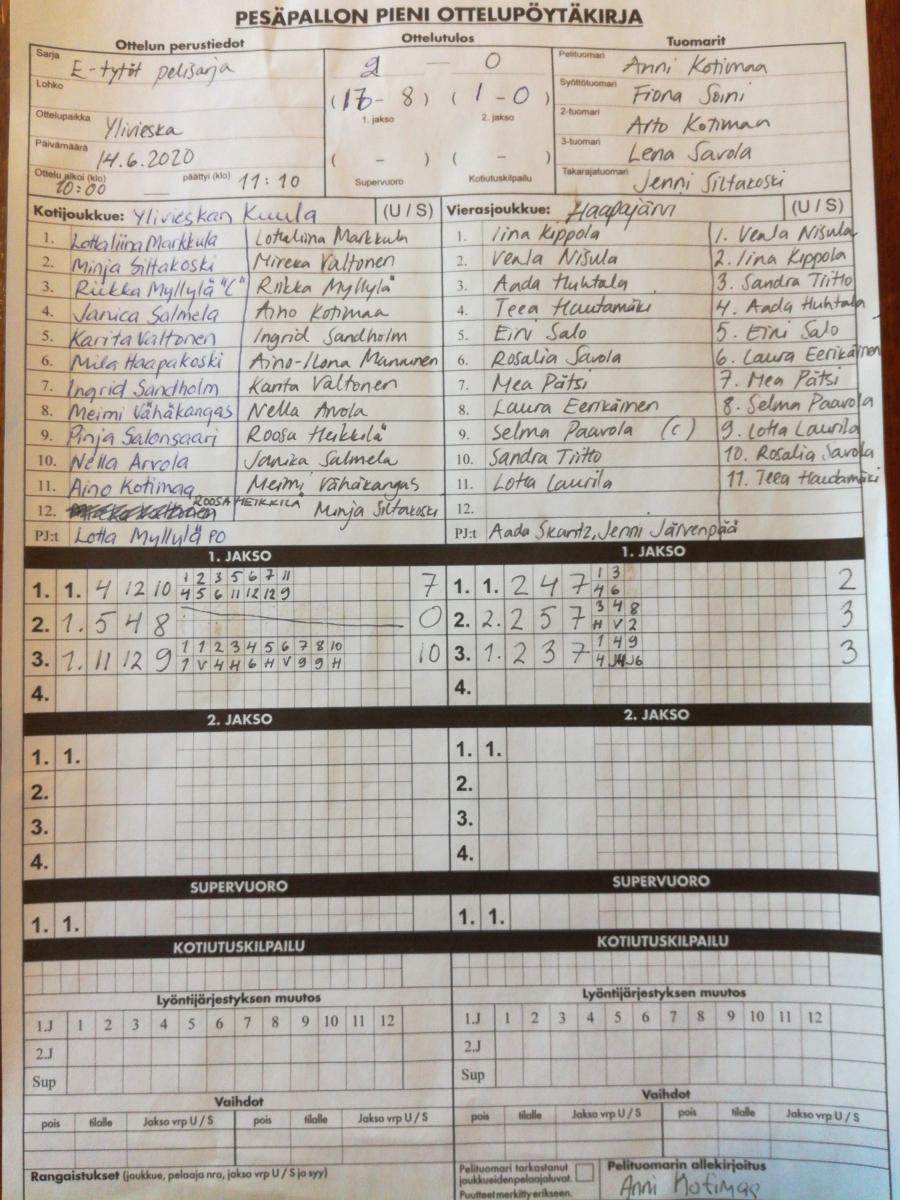 PESÄPALLON PIENI OTTELUPÖYTÄKIRJA
Ottelun perustiedot
Ottelutulos
Tuomarit
Sarja E-tytöt pelisarja
2 — 0
Pelituomari Anni Kotimaa
Lohko
(17 - 8) (1 - 0)
Syöttötuomari Fiona Soini
1. jakso 2. jakso
Ottelupaikka Ylivieska
2-tuomari Arto Kotimaa
Päivämäärä 14.6.2020
3-tuomari Lena Savola
Ottelu alkoi (klo) 10:00 — päättyi (klo) 11:10
( - ) ( - )
Supervuoro Kotiutuskilpailu
Takarajatuomari Jenni Siltakoski
Kotijoukkue: Ylivieskan Kuula (U / S)
Vierasjoukkue: Haapajärvi (U / S)
1. Lottaliina Markkula Lottaliina Markkula
2. Minja Siltakoski Mireka Valtonen
3. Riikka Myllylä "C" Riikka Myllylä
4. Janica Salmela Aino Kotimaa
5. Karita Valtonen Ingrid Sandholm
6. Mila Haapakoski Aino-Ilona Manninen
7. Ingrid Sandholm Karita Valtonen
8. Meimi Vähäkangas Nella Arvola
9. Pinja Salonsaari Roosa Heikkilä
10. Nella Arvola Janika Salmela
11. Aino Kotimaa Meimi Vähäkangas
12. ROOSA HEIKKILÄ Minja Siltakoski
PJ:t Lotta Myllylä PO
1. Iina Kippola 1. Veala Nisula
2. Veala Nisula 2. Iina Kippola
3. Aada Huhtala 3. Sandra Tiitto
4. Teea Hautamäki 4. Aada Huhtala
5. Eini Salo 5. Eini Salo
6. Rosalia Savola 6. Laura Eerikäinen
7. Mea Pätsi 7. Mea Pätsi
8. Laura Eerikäinen 8. Selma Paavola
9. Selma Paavola (c) 9. Lotta Laurila
10. Sandra Tiitto 10. Rosalia Savola
11. Lotta Laurila 11. Teea Hautamäki
12.
PJ:t Aada Skantz, Jenni Järvenpää
1. JAKSO
1. 1. 4 12 10 1 2 3 5 6 7 11 7
4 5 6 11 12 12 9
2. 1. 5 4 8 0
3. 1. 11 12 9 1 1 2 3 4 5 6 7 8 10 10
1 V 4 H 6 H V 9 9 H
4.
1. JAKSO
1. 1. 2 4 7 1 3 2
4 6
2. 2. 2 5 7 3 4 8 3
H V 2
3. 1. 2 3 7 1 4 9 3
4 J4 J6
4.
2. JAKSO
1. 1.
2.
3.
4.
2. JAKSO
1. 1.
2.
3.
4.
SUPERVUORO
1. 1.
SUPERVUORO
1. 1.
KOTIUTUSKILPAILU
KOTIUTUSKILPAILU
Lyöntijärjestyksen muutos
1.J 1 2 3 4 5 6 7 8 9 10 11 12
2.J
Sup
Lyöntijärjestyksen muutos
1.J 1 2 3 4 5 6 7 8 9 10 11 12
2.J
Sup
Vaihdot
pois tilalle Jakso vrp U / S pois tilalle Jakso vrp U / S
Vaihdot
pois tilalle Jakso vrp U / S pois tilalle Jakso vrp U / S
Rangaistukset (joukkue, pelaaja nro, jakso vrp U / S ja syy)
Pelituomari tarkastanut
joukkueiden pelaajaluvat.
Puutteet merkitty erikseen.
Pelituomarin allekirjoitus
Anni Kotimaa